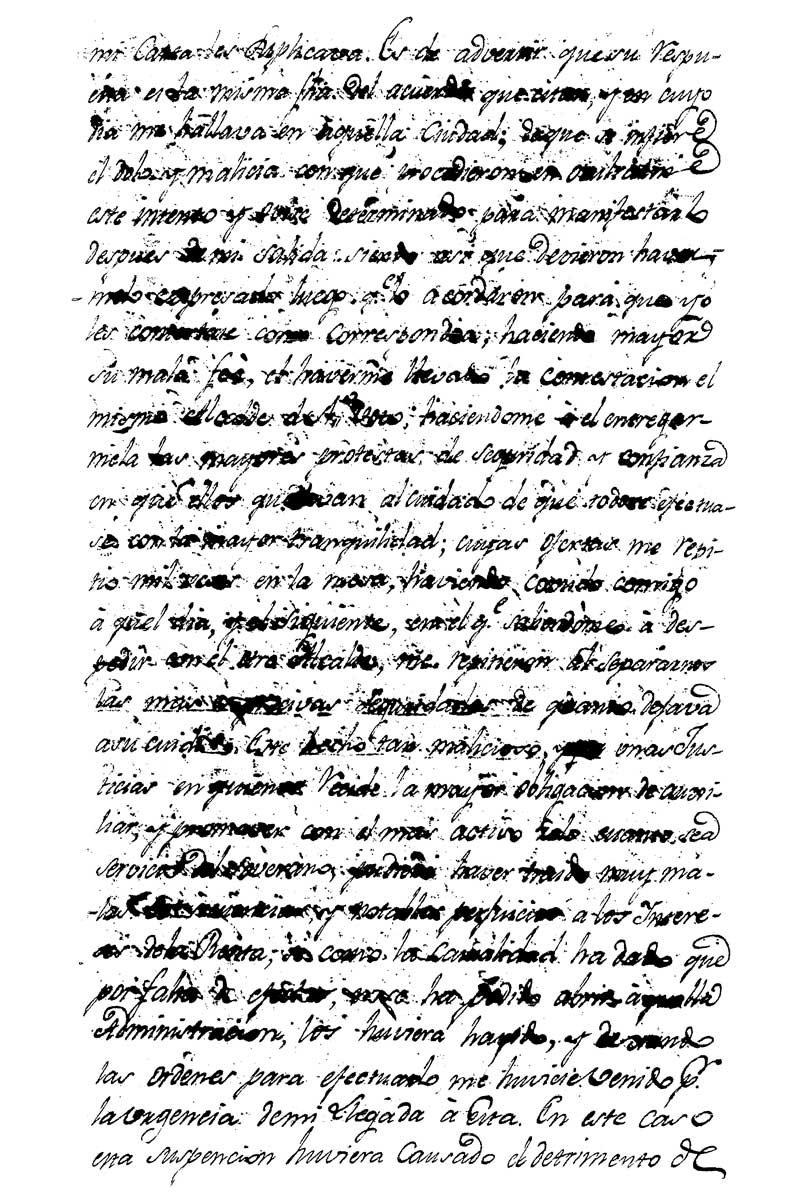 mi Carta les Replicava. Es de advertir que su respu-
esta es la misma fha. del acuerdo que citan, y en cuyo
dia me hallava en aquella Ciudad; de que se infiere
el dolo y malicia con que procedieron en
este intento y determinado para manifestarlo
despues de mi salida: siendo asi que devieron haver-
melo expresado luego qe. lo acordaron para que yo
les contestase como correspondia; haciendo mayor
su mala feè, el haverme llevado la contestacion el
mismo Alcalde de Voto; haciendome à el entregar-
mela las mayores protestas de seguridad y confianza
en que ellos quedavan al cuidado de que todo se efectua-
se con la mayor tranquilidad; cuyas ofertas me repi-
tio mil veces en la mesa, haviendo comido comigo
à quel dia, y el siguiente, en el qe. saliendome à des-
pedir con el otro Alcalde, me repitieron al separarnos
las mas expresivas seguridades de quanto dejava
a su cuidado. Este hecho tan malicioso, para unas Jus-
ticias en quienes reside la mayor obligacion de auxi-
liar, y promover con el mas activo zelo quanto sea
servicio del Soverano, pudiera haver traido muy ma-
las consequencias, y notables perjuicios à los Intere-
ses de la Renta; si como la casualidad ha dado que
por falta de efectos, no se ha podido abrir à quella
Administracion, los huviera havido, y
las ordenes para efectuarlo me huviese venido pr.
la urgencia de mi llegada à esta. En este caso
esta suspencion huviera causado el detrimento de